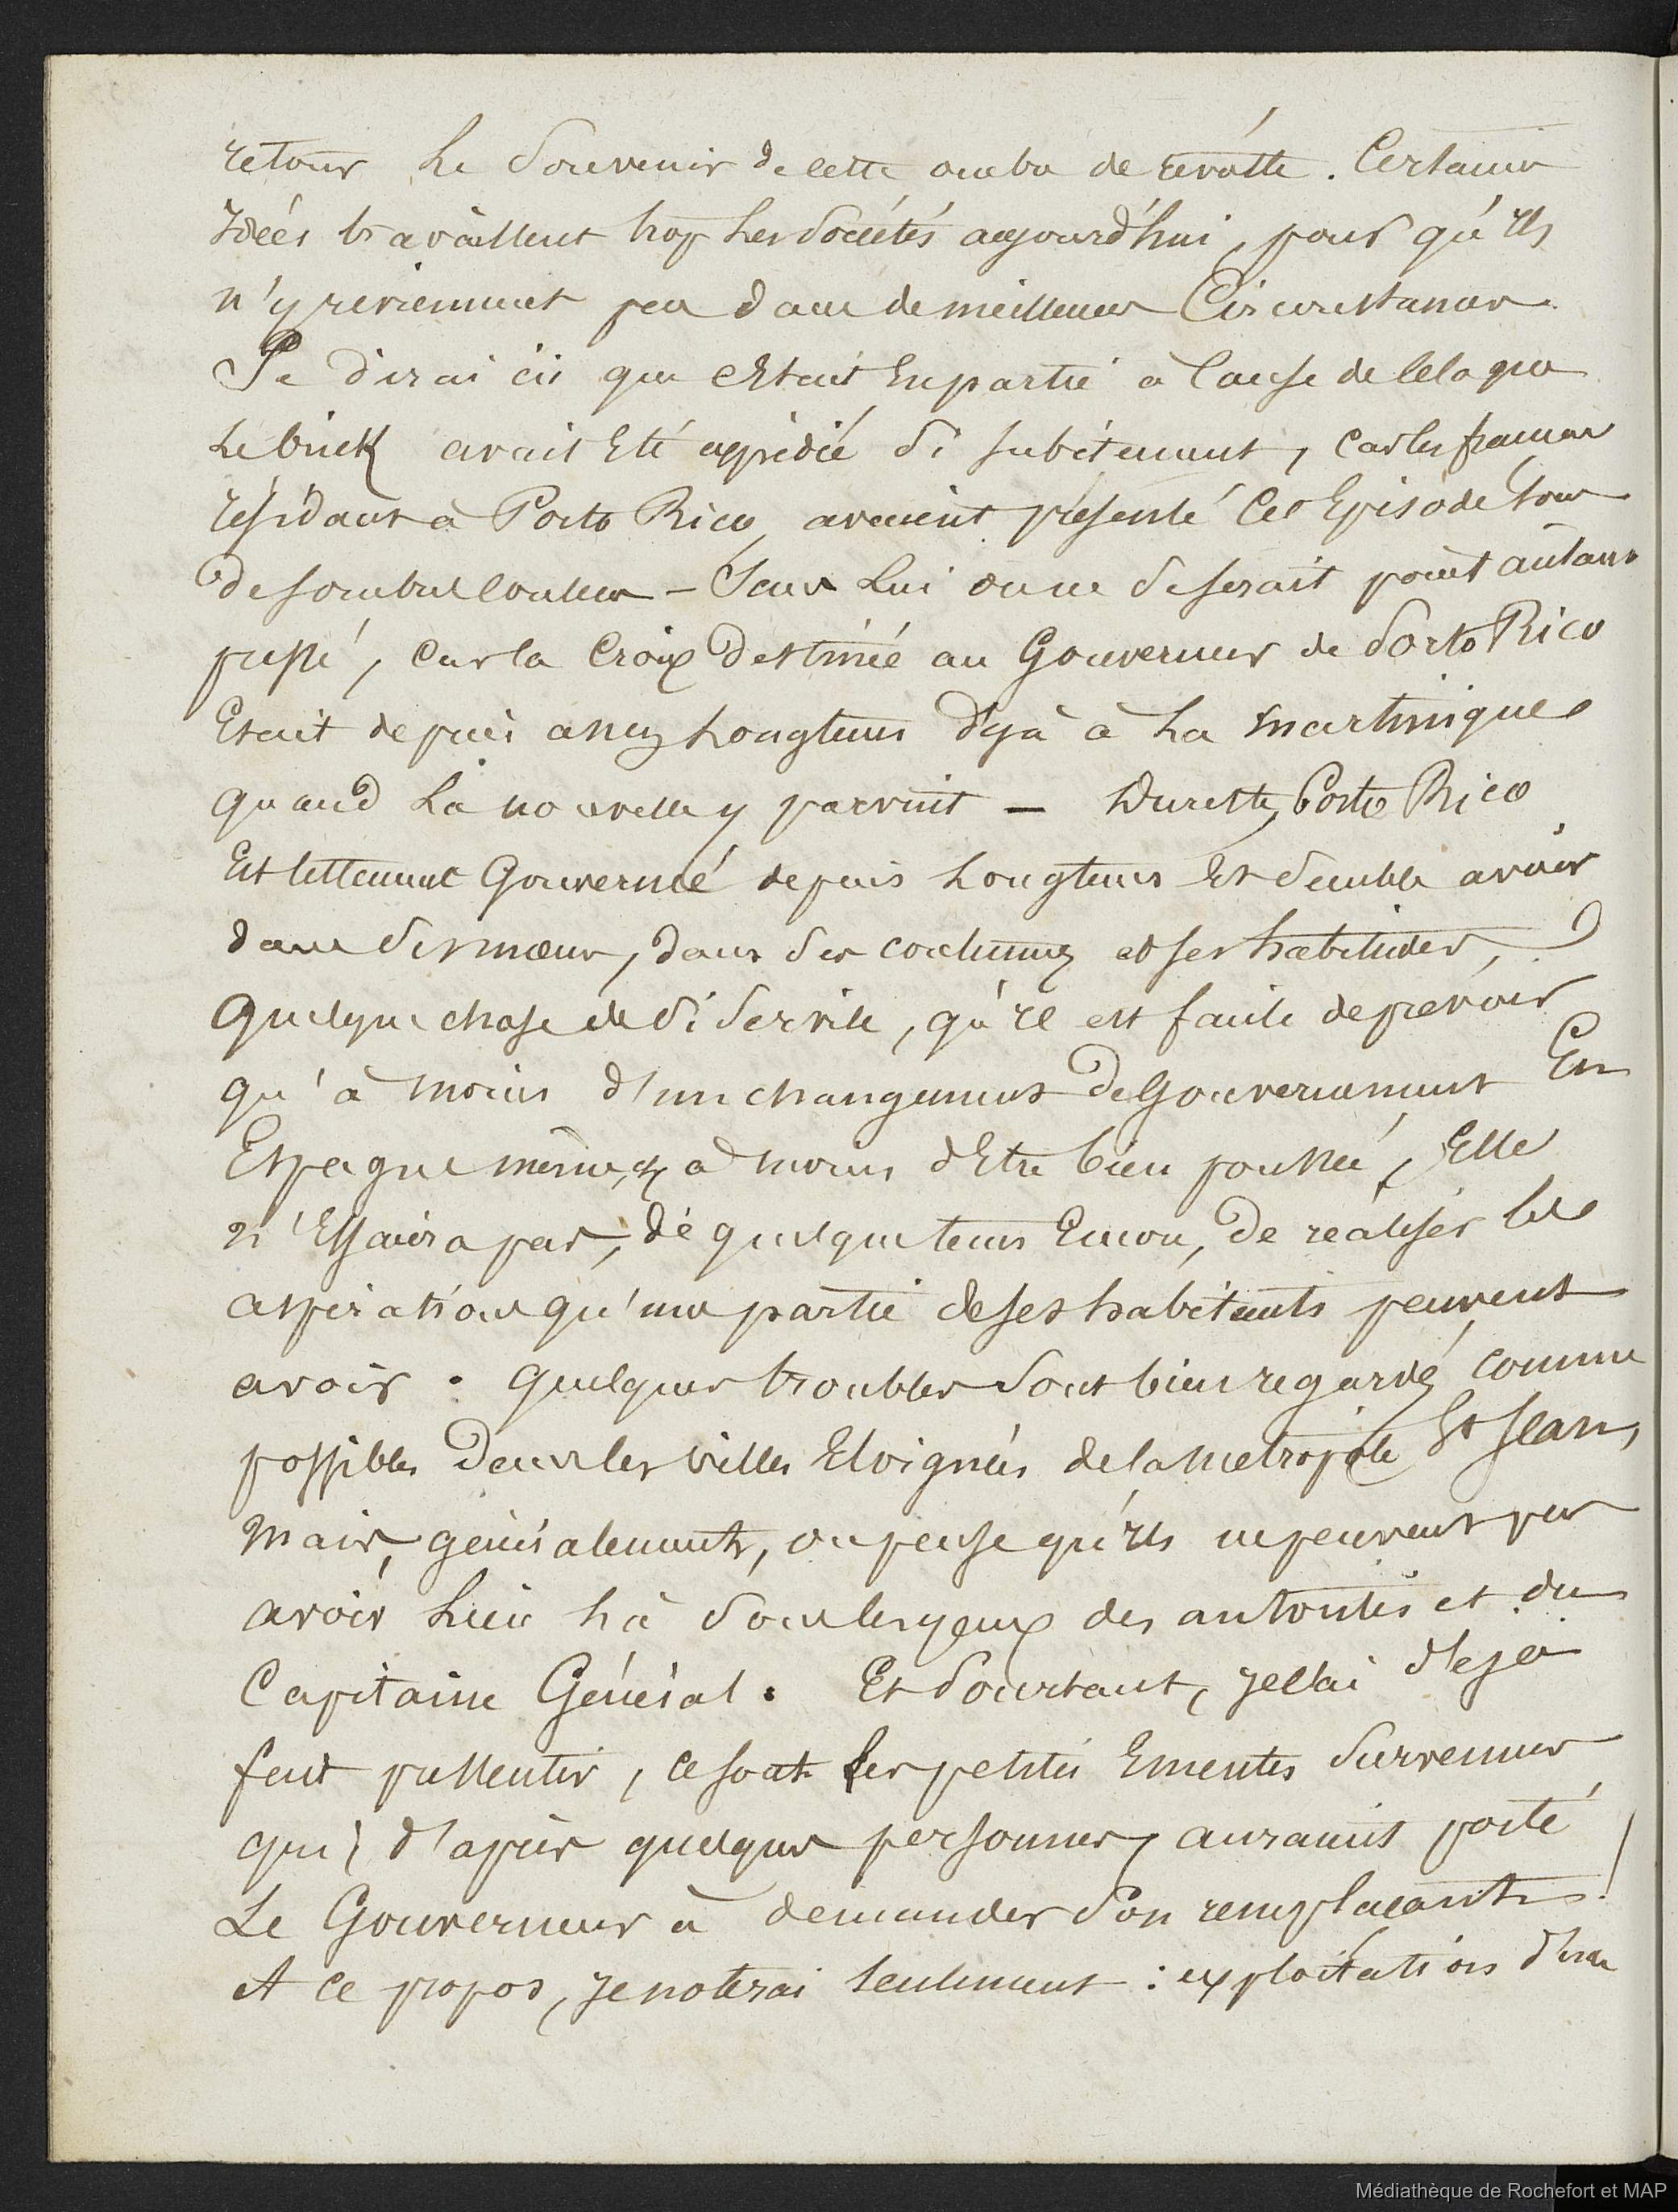 retour le souvenir de cette ombre de révolte. Certaines
Idées travaillent trop les sociétés aujourd'hui, pour qu'ils
n'y reviennent pas dans de meilleures Circonstances.
Je dirai ici que c'Etait En partie à Cause de Cela que
le brick avait Eté expédié si subitement, car les français
résidant à Porto Rico, avaient présenté Cet Episode sous
de sombres couleurs – Sans lui on ne se serait point autant
pressé, car la Croix Destinée au Gouverneur de Porto Rico
Etait depuis assez longtems déjà à la Martinique
quand la nouvelle y parvint – Du reste, Porto Rico
Est tellement Gouverné depuis longtems Et semble avoir
dans ses mœurs, dans ses coutumes et ses habitudes,
quelque chose de si servile, qu'il est facile de prévoir
qu'à moins d'un changement De Gouvernement En
Espagne même, & à moins d'Etre bien poussée, Elle
n'Essaiera pas, de quelque tems Encore, De réaliser les
aspirations qu'une partie de ses habitants peuvent
avoir. Quelques troubles sont bien regardés comme
possibles Dans les villes Eloignées de la métropole St Jean,
Mais, généralement, on pense qu'ils ne peuvent pas
avoir lieu là sous les yeux des autorités et du
Capitaine Général. Et Pourtant, je l'ai déjà
fait pressentir, ce sont les petites Emeutes survenues
qui, d'après quelques personnes, auraient porté
Le Gouverneur à demander son remplaçant !
A ce propos, je noterai seulement : exploitation d'une
Médiathèque de Rochefort et MAP